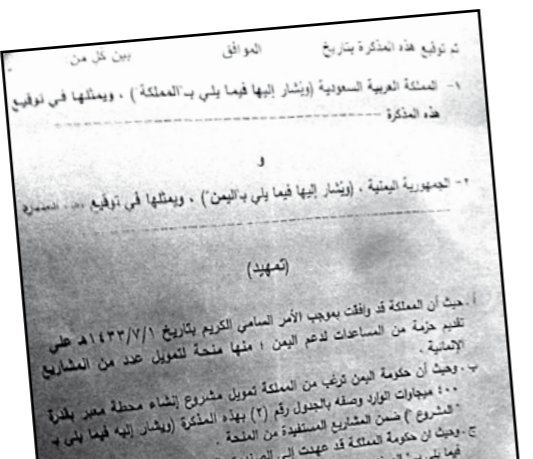 تم توقيع هذه المذكرة بتاريخ الموافق بين كل من:
١- المملكة العربية السعودية (ويُشار إليها فيما يلي بـ"المملكة") ، ويمثلها في توقيع
هذه المذكرة
و
٢- الجمهورية اليمنية ، (ويُشار إليها فيما يلي بـ"اليمن") ، ويمثلها في توقيع
(تمهيد)
أ . حيث أن المملكة قد وافقت بموجب الأمر السامي الكريم بتاريخ ١٤٣٣/٧/١هـ على
تقديم حزمة من المساعدات لدعم اليمن ؛ منها منحة لتمويل عدد من المشاريع
الإنمائية .
ب . وحيث أن حكومة اليمن ترغب من المملكة تمويل مشروع إنشاء محطة معبر بقدرة
٤٠٠ ميجاوات الوارد وصفه بالجدول رقم (٢) بهذه المذكرة (ويشار إليه فيما يلي بـ
"المشروع") ضمن المشاريع المستفيدة من المنحة .
ج . وحيث ان حكومة المملكة قد عهدت إلى
فيما يلي بـ"